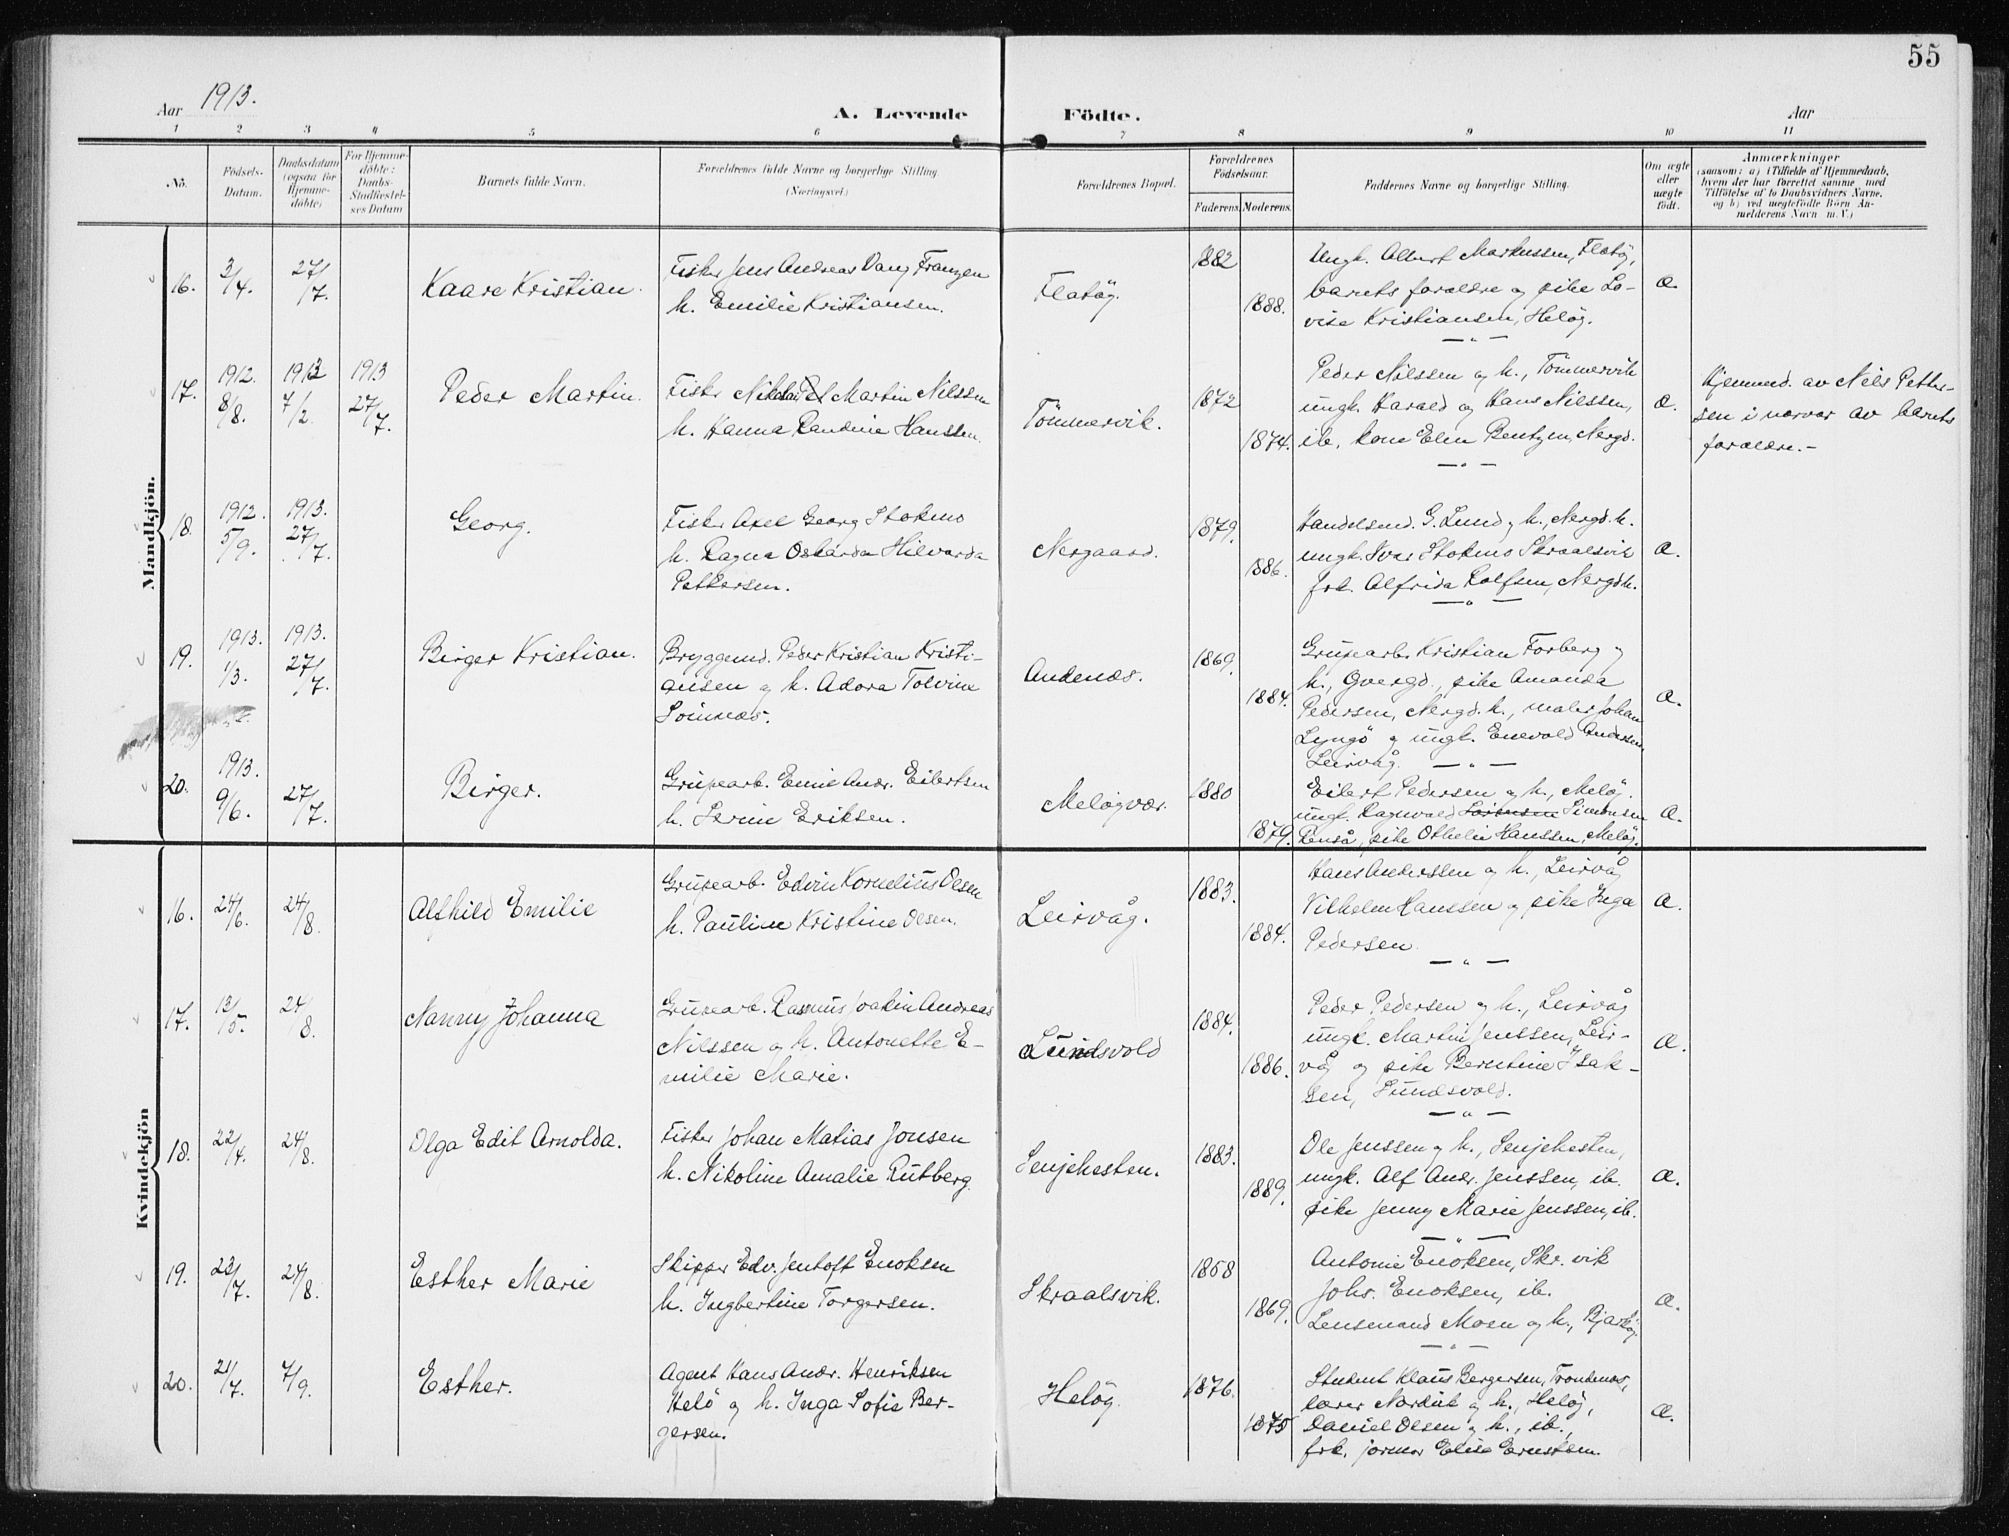 55
Aar 1913.
A. Levende Födte.
Aar
1 2 3 4 5 6 7 8 9 10 11
No.
Födsels-
Datum.
Daabsdatum
(ogsaa for
Hjemme-
döbte)
For Hjemme-
döbte:
Daabs-
Stadfæstel-
ses Datum
Barnets fulde Navn.
Forældrenes fulde Navne og borgerlige Stilling
(Næringsvei)
Forældrenes Bopæl.
Forældrenes
Födselsaar.
Faderens. Moderens.
Faddernes Navne og borgerlige Stilling.
Om ægte
eller
uægte
födt.
Anmærkninger
(saasom: a) i Tilfælde af Hjemmedaab,
hvem der har forrettet samme med
Tilföielse af to Daabsvidners Navne,
og b) ved uægtefödte Börn An-
melderens Navn m. V.)
Mandkjön.
16.
3/4.
27/7.
Kaare Kristian.
Fisker Jens Andreas Vang Franzen
h. Emilie Kristiansen.
Flatøg.
1882
1888.
Ungk. Albert Markussen, Flatøg,
barnets forældre og pike Lo-
vise Kristiansen, Heløg.
Æ.
17.
1912.
8/8.
1913
7/2.
1913
27/7.
Peder Martin.
Fisker Nikolai Martin Nilssen
h. Hanna Randine Hanssen.
Tömmervik.
1872
1874.
Peder Nilssen og h., Tömmervik
ungk. Harald og Hans Nilssen,
ib. kone Elen Bentzen, Nergd.
Æ.
Hjemmed. av Nils Petter-
sen i nærvær av barnets
forældre.-
18.
1912.
5/9.
1913.
27/7.
Georg.
Fisker Axel Georg Stokmo
h. Ragna Oskarda Hilvarda
Pettersen.
Nergaard.
1879.
1886.
Handelsmd. G. Lund og h., Nergd. h.
ungk. Ivar Stokmo Skraalsvik
frk. Alfrida Rolfsen, Nergdh.
Æ.
19.
1913.
1/3.
1913.
27/7.
Birger Kristian.
Bryggemd. Peder Kristian Kristi-
ansen og h. Adora Tolvine
Sömnæs.
Andenæs.
1869.
1884.
Grupearb. Kristian Forberg og
h., Qvergd., pike Amanda
Pedersen, Nergd. h., maler Johan
Lyngö og ungk. Enevold Andersen
Leirvåg.
Æ.
20.
1913.
9/6.
27/7.
Birger.
Grupearb. Emil Andr. Eilertsen
h. Serine Eriksen.
Meløgvær.
1880
1879.
Eilert Pedersen og h., Meløg.
ungk. Ragnvald Simonsen
Renså, pike Othelie Hanssen, Meløg.
Æ.
Kvindekjön
16.
24/6.
24/8.
Alfhild Emilie
Grupearb. Edvin Kornelius Olsen
h. Pauline Kristine Olsen.
Leirvåg.
1883.
1884.
Hans Anderssen og h., Leirvåg
Vilhelm Hanssen og pike Inga
Pedersen.
Æ.
17.
13/5.
24/8.
Nanny Johanna
Grupearb. Rasmus Joakin Andreas
Nilssen og h. Antonette E-
milie Marie.
Lundsvold
1884.
1886.
Peder Pedersen og h., Leirvåg
ungk. Martin Jenssen, Leir-
våg og pike Berntine Isak-
sen, Lundsvold.
Æ.
18.
22/4.
24/8.
Olga Edit Arnolda.
Fisker Johan Matias Jonsen
h. Nikoline Amalie Rutberg.
Senjehesten.
1883.
1889.
Ole Jenssen og h., Senjehesten,
ungk. Alf Andr. Jenssen, ib.
pike Jenny Marie Jenssen, ib.
Æ.
19.
23/7.
24/8.
Esther Marie
Skipper Edv. Jentoft Enoksen
h. Ingbertine Torgersen.
Skraalsvik.
1868
1869.
Antonie Enoksen, Skr. vik
Johs. Enoksen, ib.
Lensmand Moen og h., Bjarkøg.
Æ.
20.
21/7.
7/9.
Esther.
Agent Hans Andr. Henriksen
Helö og h. Inga Sofie Ber-
gersen.
Heløg.
1876.
1875
Student Klaus Bergersen, Trondenæs,
lærer Nordvik og h., Heløg,
Daniel Olsen og h., ib.,
frk. jormor Elise Ernstsen.
Æ.